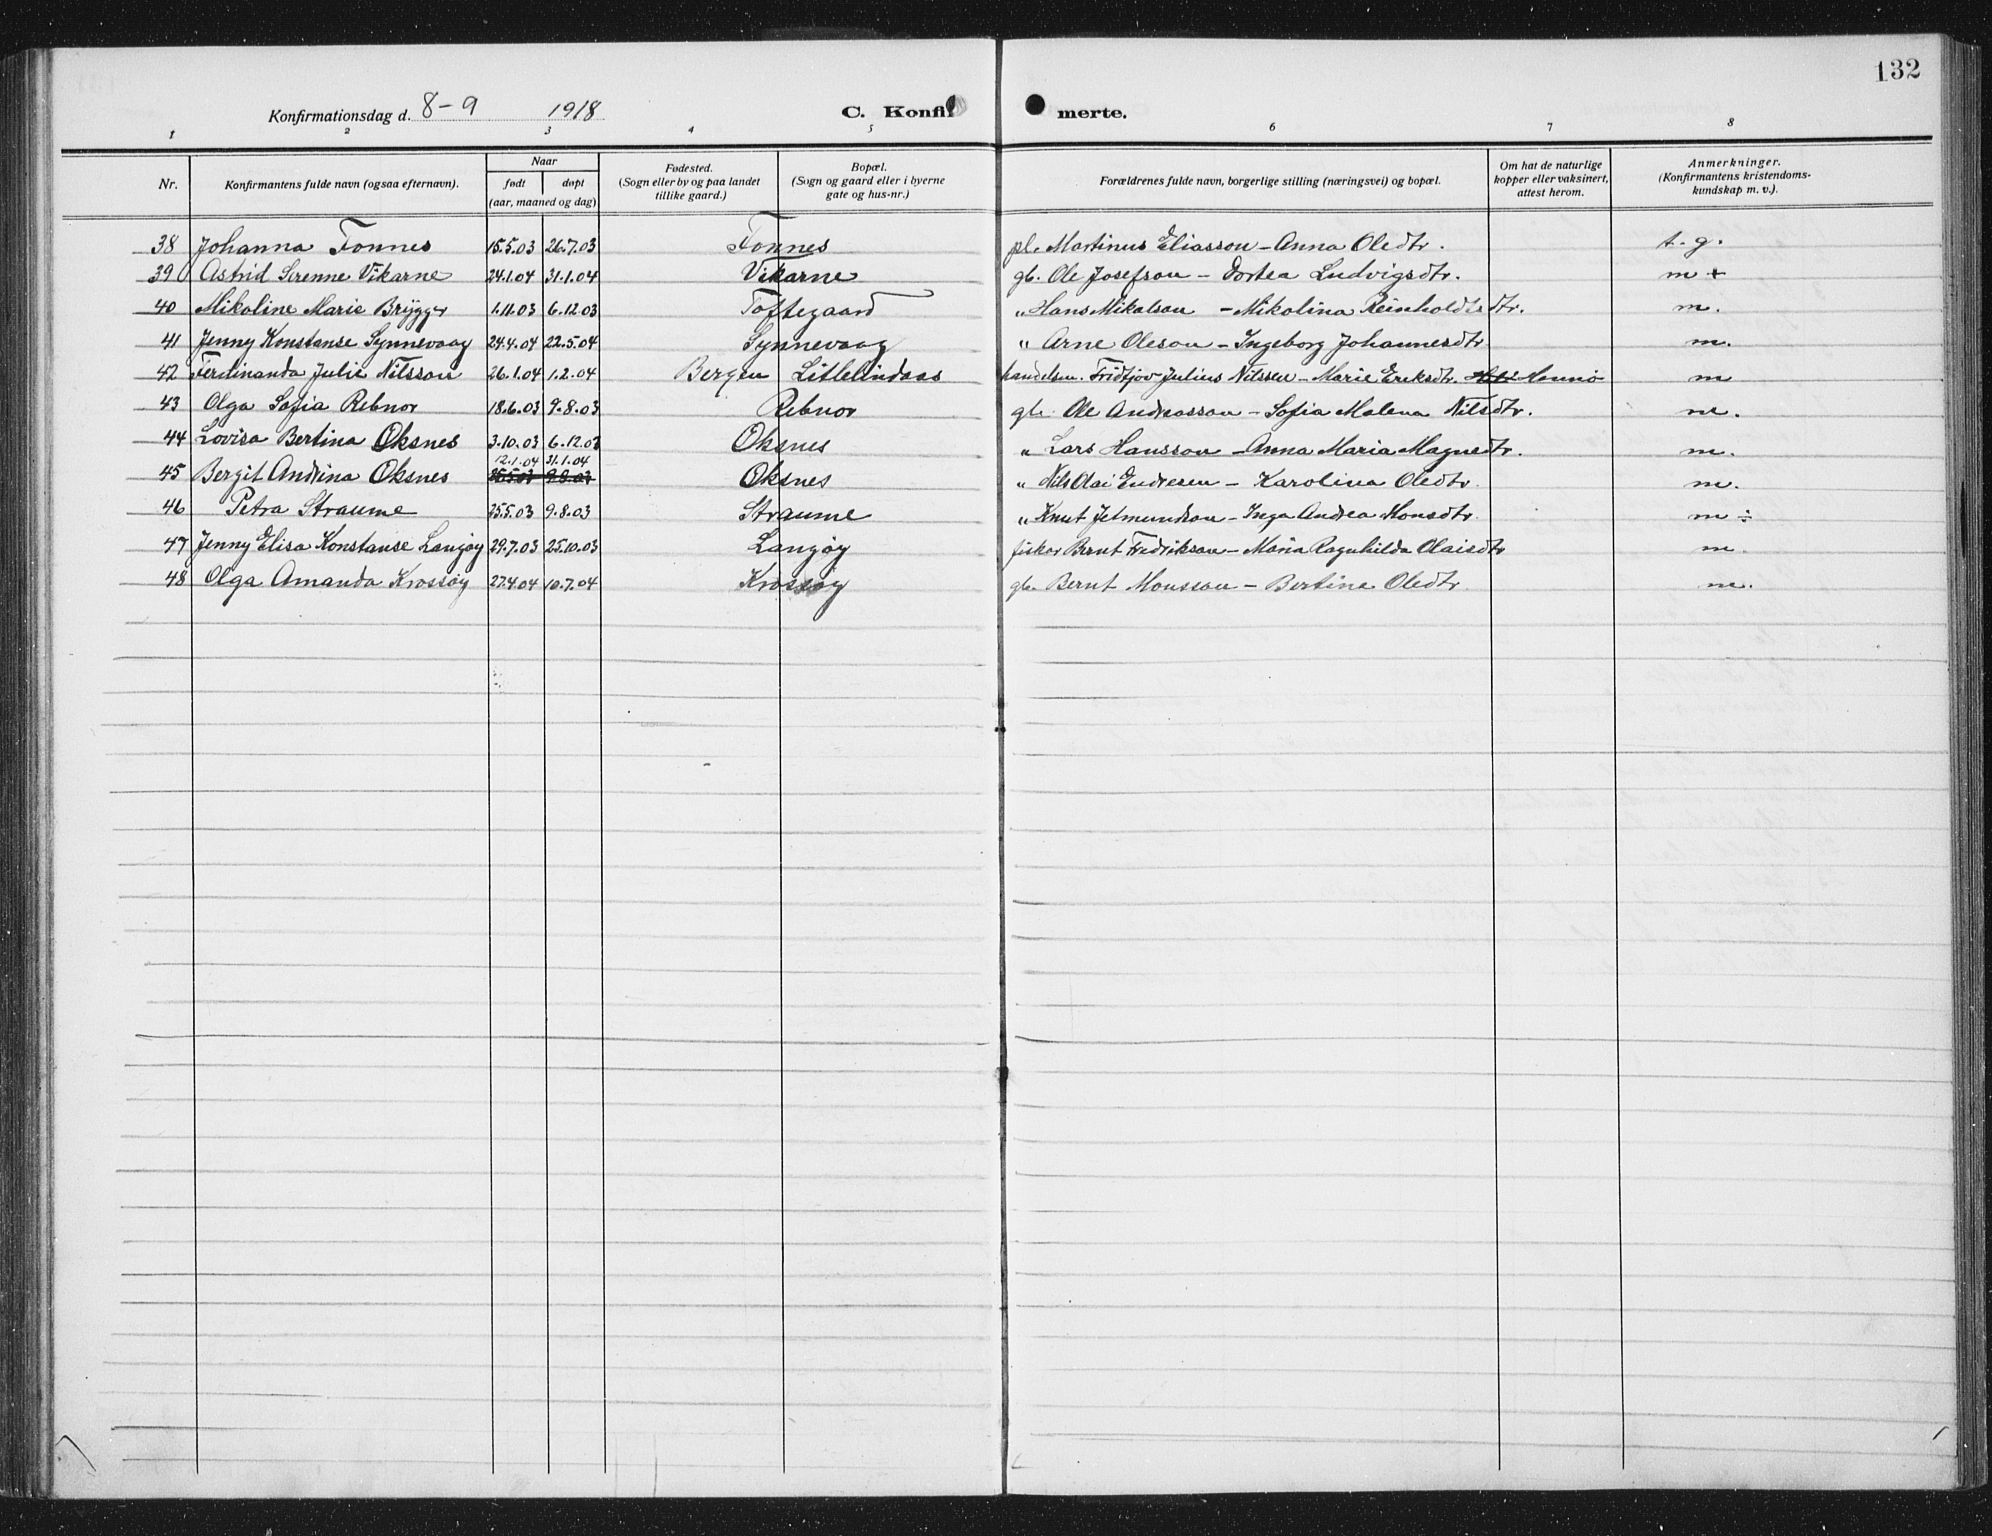 132
Konfirmationsdag d. 8-9 1918 C. Konfir merte.
1 2 3 4 5 6 7 8
Nr. Konfirmantens fulde navn (ogsaa efternavn). Naar født døpt (aar, maaned og dag) Fødested. (Sogn eller by og paa landet tillike gaard.) Bopæl. (Sogn og gaard eller i byerne gate og hus-nr.) Forældrenes fulde navn, borgerlige stilling (næringsvei) og bopæl. Om hat de naturlige kopper eller vaksinert, attest herom. Anmerkninger. (Konfirmantens kristendoms-kundskap m. v.).
38 Johanna Fonnes 15.5.03 26.7.03 Fonnes pl. Martinus Eliasson - Anna Oledtr. t.g.
39 Astrid Serenne Vikarne 24.1.04 31.1.04 Vikarne gb. Ole Josefson - Dortea Ludvigsdtr. m +
40 Mikoline Marie Brygger 1.11.03 6.12.03 Toftegaard " Hans Mikalson - Mikolina Reinholdtsdtr. m.
41 Jenny Konstanse Synnevaag 24.4.04 22.5.04 Synnevaag " Arne Oleson - Ingeborg Johannesdtr m.
42 Ferdinanda Julie Nilsson 26.1.04 1.2.04 Bergen Litlelindaas handelsm. Fridtjov Julius Nilssen - Marie Eriksdtr. Hennø m
43 Olga Sofia Rebnor 18.6.03 9.8.03 Rebnor gb. Ole Andreasson - Sofia Malena Nilsdtr. m.
44 Lovisa Bertina Oksnes 3.10.03 6.12.03 Oksnes " Lars Hansson - Anna Maria Magnedtr. m.
12.1.04 31.1.04
45 Bergit Andrina Oksnes 25.5.03 9.8.03 Oksnes " Nils Olai Endresen - Karolina Oledtr. m.
46 Petra Straume 25.5.03 9.8.03 Straume " Knut Jetmundson - Inga Andrea Monsdtr. m ÷
47 Jenny Elisa Konstanse Langøy 29.7.03 25.10.03 Langøy fisker Bernt Fredrikson - Maria Ragnhilda Olaisdtr m.
48 Olga Amanda Krossøy 27.4.04 10.7.04 Krossøy gb. Bernt Monsson - Bertine Oledtr. m.